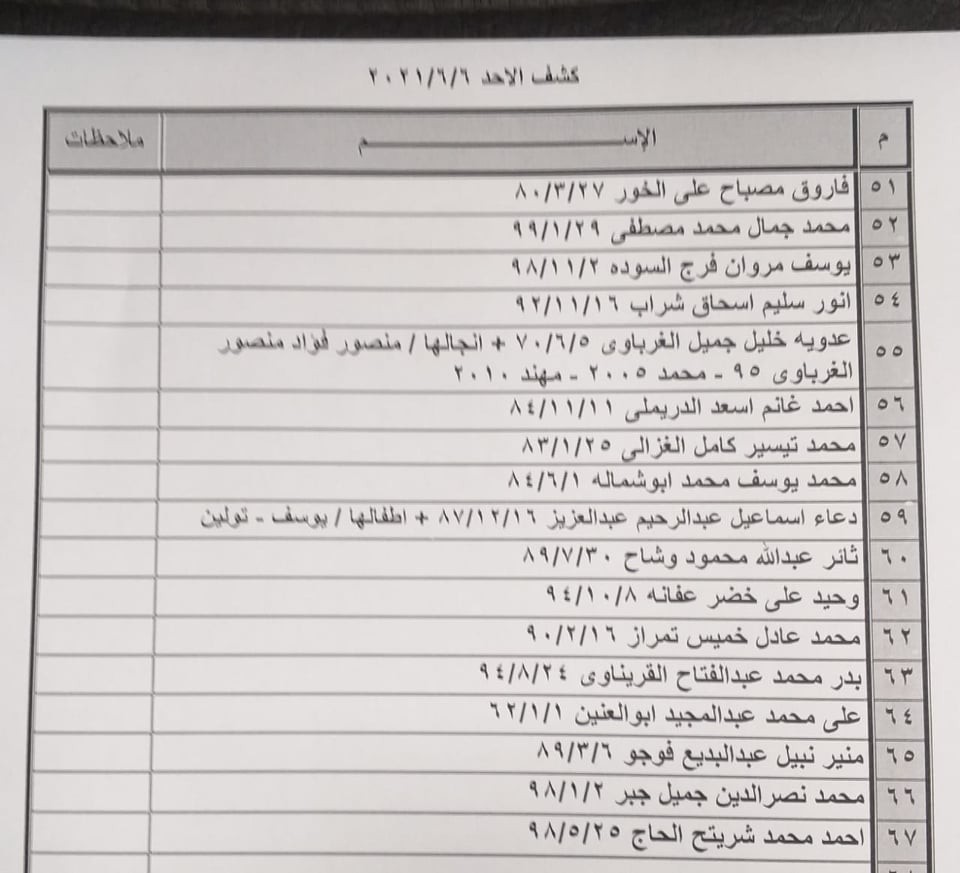 كشف الاحد ٢٠٢١/٦/٦
م الإســـــــــــــــم ملاحظات
٥١ فاروق مصباح على الخور ٨٠/٣/٢٧
٥٢ محمد جمال محمد مصطفى ٩٩/١/٢٩
٥٣ يوسف مروان فرج السوده ٩٨/١١/٢
٥٤ انور سليم اسحاق شراب ٩٢/١١/١٦
٥٥ عدويه خليل جميل الغرباوى ٧٠/٦/٥ + انجالها / منصور فؤاد منصور
الغرباوى ٩٥ - محمد ٢٠٠٥ - مهند ٢٠١٠
٥٦ احمد غانم اسعد الدريملى ٨٤/١١/١١
٥٧ محمد تيسير كامل الغزالى ٨٣/١/٢٥
٥٨ محمد يوسف محمد ابوشماله ٨٤/٦/١
٥٩ دعاء اسماعيل عبدالرحيم عبدالعزيز ٨٧/١٢/١٦ + اطفالها / يوسف - تولين
٦٠ ثائر عبدالله محمود وشاح ٨٩/٧/٣٠
٦١ وحيد على خضر عفانه ٩٤/١٠/٨
٦٢ محمد عادل خميس تمراز ٩٠/٢/١٦
٦٣ بدر محمد عبدالفتاح القريناوى ٩٤/٨/٢٤
٦٤ على محمد عبدالمجيد ابوالعنين ٦٢/١/١
٦٥ منير نبيل عبدالبديع فوجو ٨٩/٣/٦
٦٦ محمد نصرالدين جميل جبر ٩٨/١/٢
٦٧ احمد محمد شريتح الحاج ٩٨/٥/٢٥